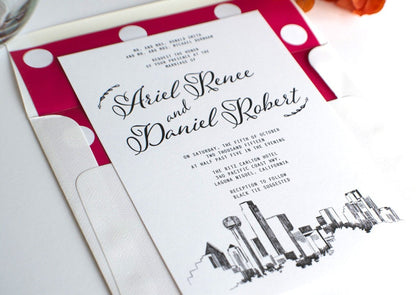 MR. AND MRS. RONALD SMITH
AND MR. AND MRS. MICHAEL BURNHAM
REQUEST THE HONOR
OF YOUR PRESENCE AT THE
MARRIAGE OF
Ariel Renee
and
Daniel Robert
ON SATURDAY, THE FIFTH OF OCTOBER
TWO THOUSAND FIFTEEN
AT HALF PAST FIVE IN THE EVENING
THE RITZ CARLTON HOTEL
340 PACIFIC COAST HWY.
LAGUNA NIGUEL, CALIFORNIA
RECEPTION TO FOLLOW
BLACK TIE SUGGESTED